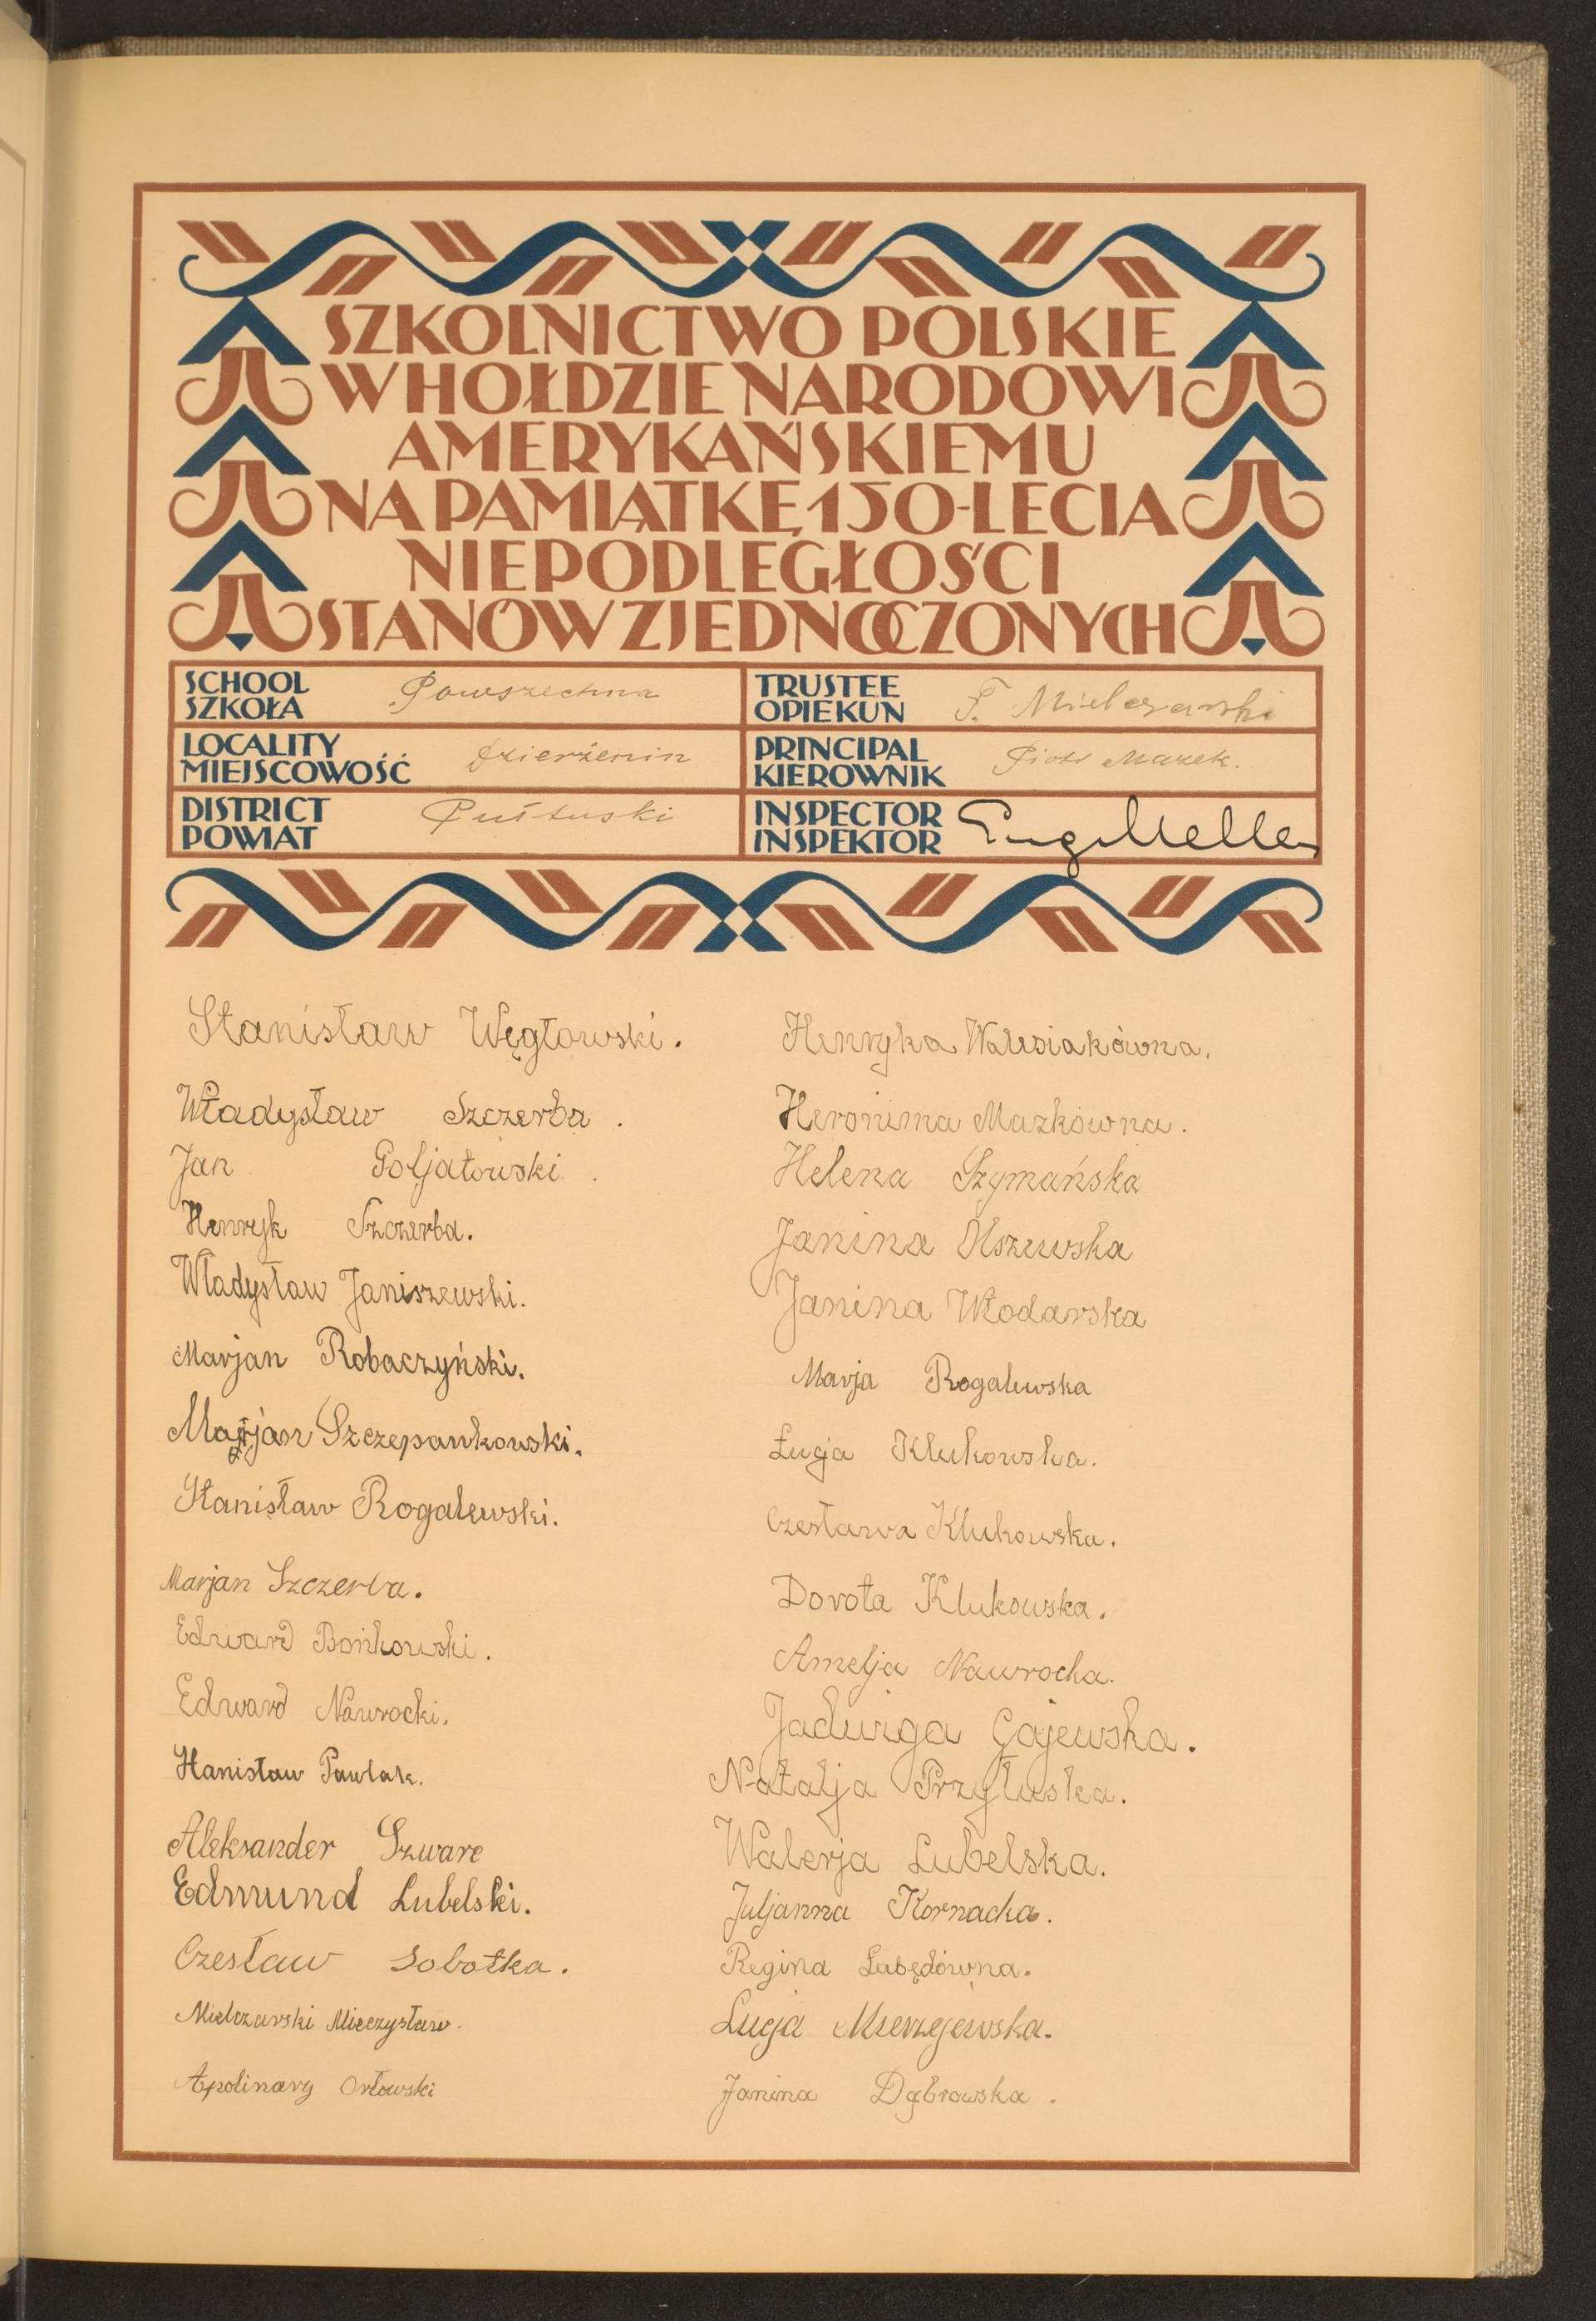 SZKOLNICTWO POLSKIE
W HOŁDZIE NARODOWI
AMERYKAŃSKIEMU
NA PAMIĄTKĘ 150-LECIA
NIEPODLEGŁOŚCI
STANÓW ZJEDNOCZONYCH
SCHOOL
SZKOŁA
Powszechna
TRUSTEE
OPIEKUN
F. Mielczarski
LOCALITY
MIEJSCOWOŚĆ
Dzierżenin
PRINCIPAL
KIEROWNIK
Piotr Mazek.
DISTRICT
POWIAT
Pułtuski
INSPECTOR
INSPEKTOR
Stanisław Węgłowski.
Władysław Szczerba.
Jan Goljatowski.
Henryk Szczerba.
Władysław Janiszewski.
Marjan Robaczyński.
Marjan Szczepankowski.
Stanisław Rogalewski.
Marjan Szczerba.
Edward Bońkowski.
Edward Nawrocki.
Stanisław Pawlak.
Aleksander Szwarc
Edmund Lubelski.
Czesław Sobotka.
Mielczarski Mieczysław.
Apolinary Orłowski
Henryka Walesiakówna.
Heronima Mazkówna.
Helena Szymańska
Janina Olszewska
Janina Włodarska
Marja Rogalewska
Łucja Klukowska.
Czesława Klukowska.
Dorota Klukowska.
Amelja Nawrocka.
Jadwiga Gajewska.
Natalja Przyłuska.
Walerja Lubelska.
Juljanna Kornacka.
Regina Łabędówna.
Lucja Mierzejewska.
Janina Dąbrowska.